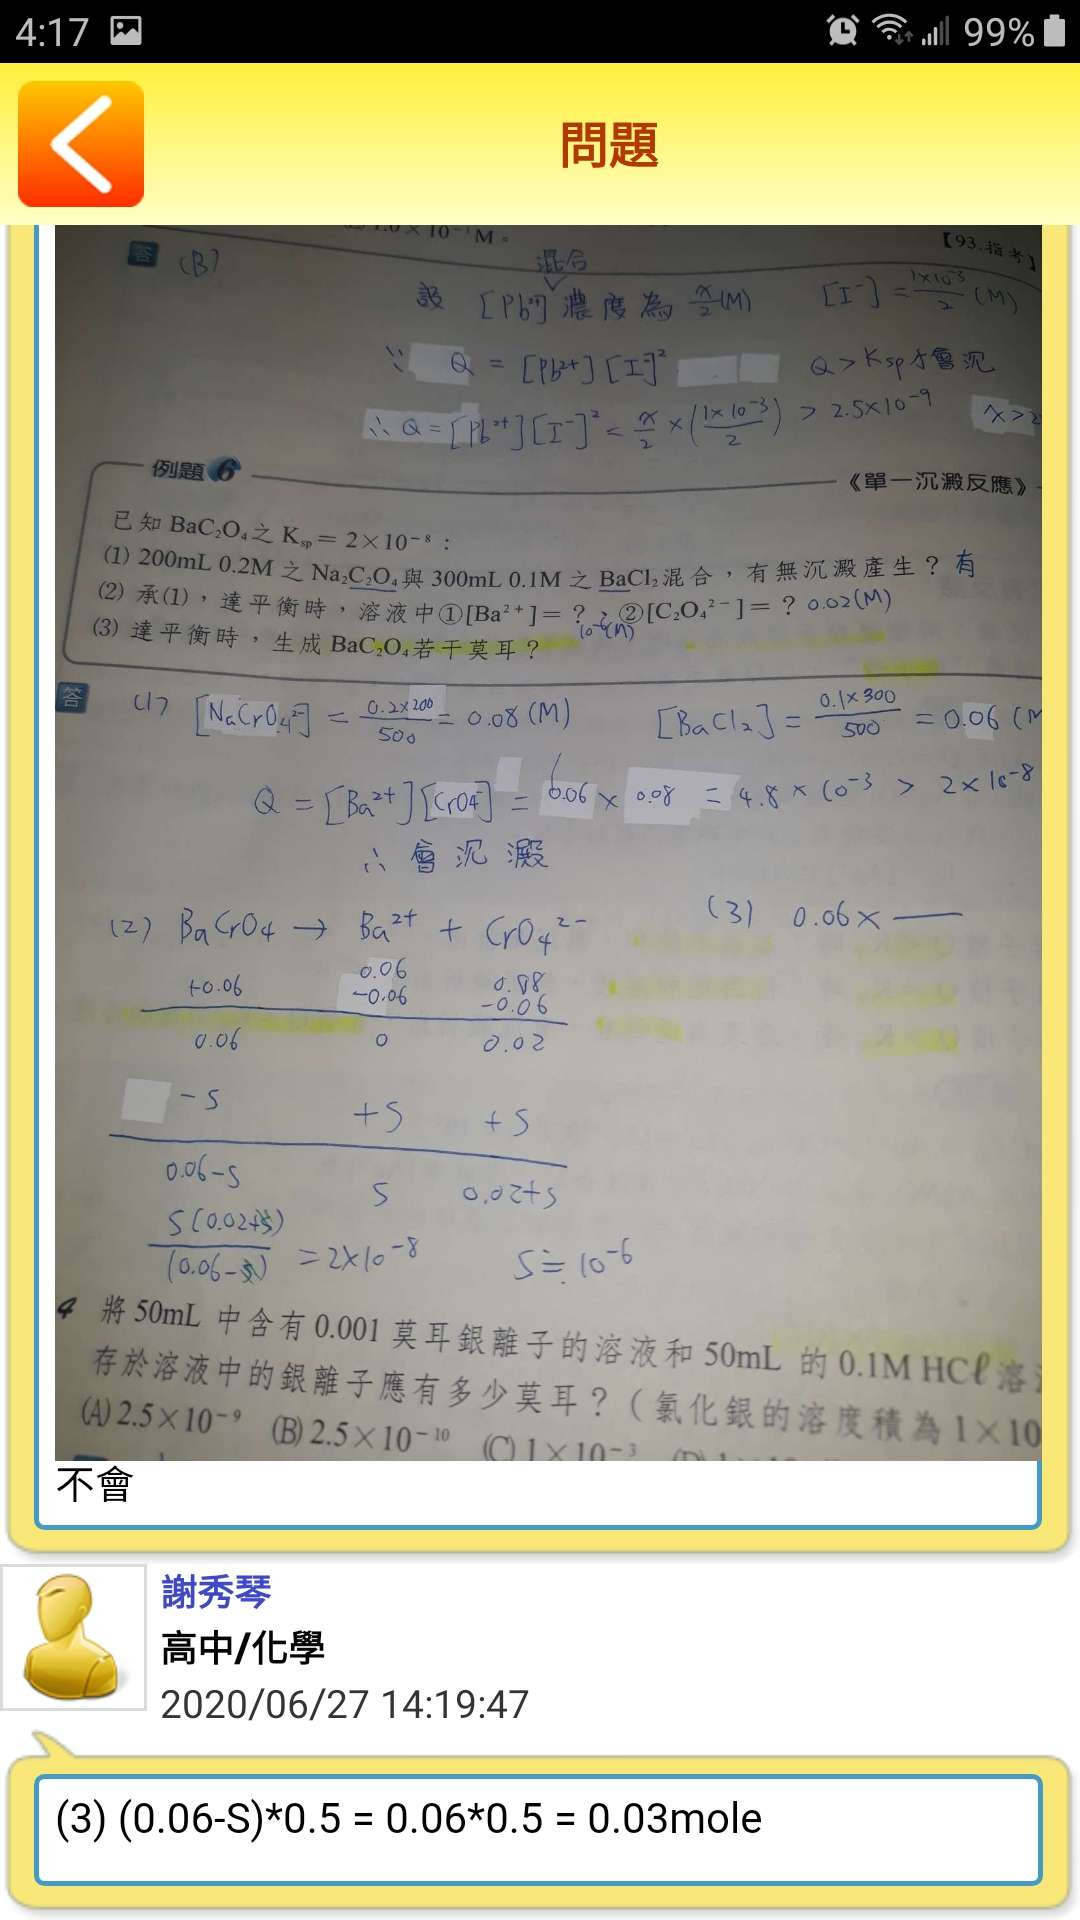 4:17 99%
問題
1.0×10⁻¹M。
【93.指考】
答 (B)
混合
設 [Pb²⁺]濃度為 x/2 (M) [I⁻] = 1×10⁻³/2 (M)
∵ Q = [Pb²⁺][I⁻]² Q > Ksp才會沉
∴ Q = [Pb²⁺][I⁻]² = x/2 × (1×10⁻³/2) > 2.5×10⁻⁹ x>2
例題6 《單一沉澱反應》
已知 BaC₂O₄之 Ksp = 2×10⁻⁸:
(1) 200mL 0.2M 之 Na₂C₂O₄與 300mL 0.1M 之 BaCl₂混合,有無沉澱產生? 有
(2) 承(1),達平衡時,溶液中①[Ba²⁺]=? ; ②[C₂O₄²⁻]=? 0.02(M)
10⁻⁶(M)
(3) 達平衡時,生成 BaC₂O₄若干莫耳?
答 (1) [NaCrO₄²⁻] = 0.2×200/500 = 0.08 (M) [BaCl₂] = 0.1×300/500 = 0.06 (M
Q = [Ba²⁺][CrO4⁻] = 0.06 × 0.08 = 4.8 × 10⁻³ > 2×10⁻⁸
∴ 會沉澱
(2) BaCrO₄ → Ba²⁺ + CrO₄²⁻ (3) 0.06×
0.06 0.08
+0.06 -0.06 -0.06
0.06 0 0.02
-S +S +S
0.06-S S 0.02+S
S(0.02+S)/(0.06-S) = 2×10⁻⁸ S≒10⁻⁶
4 將 50mL 中含有 0.001 莫耳銀離子的溶液和 50mL 的 0.1M HCℓ 溶
存於溶液中的銀離子應有多少莫耳?(氯化銀的溶度積為 1×10
(A) 2.5×10⁻⁹ (B) 2.5×10⁻¹⁰ (C) 1×10⁻³
不會
謝秀琴
高中/化學
2020/06/27 14:19:47
(3) (0.06-S)*0.5 = 0.06*0.5 = 0.03mole